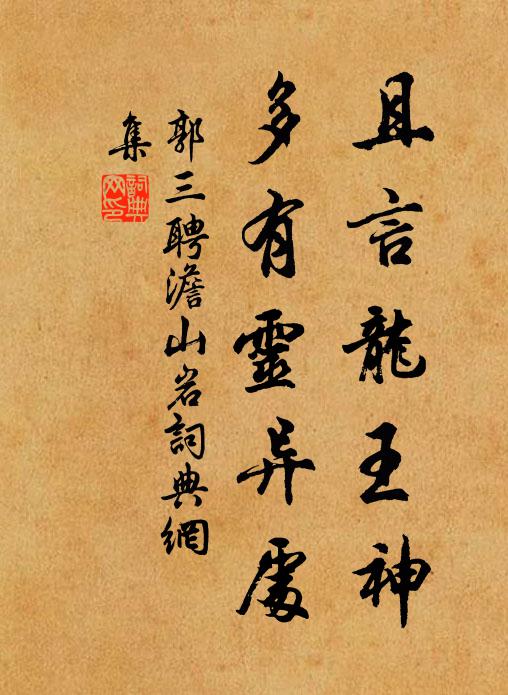 且言龍王神
多有靈异處
郭三聘澹山岩詞典網
集
詞典網印